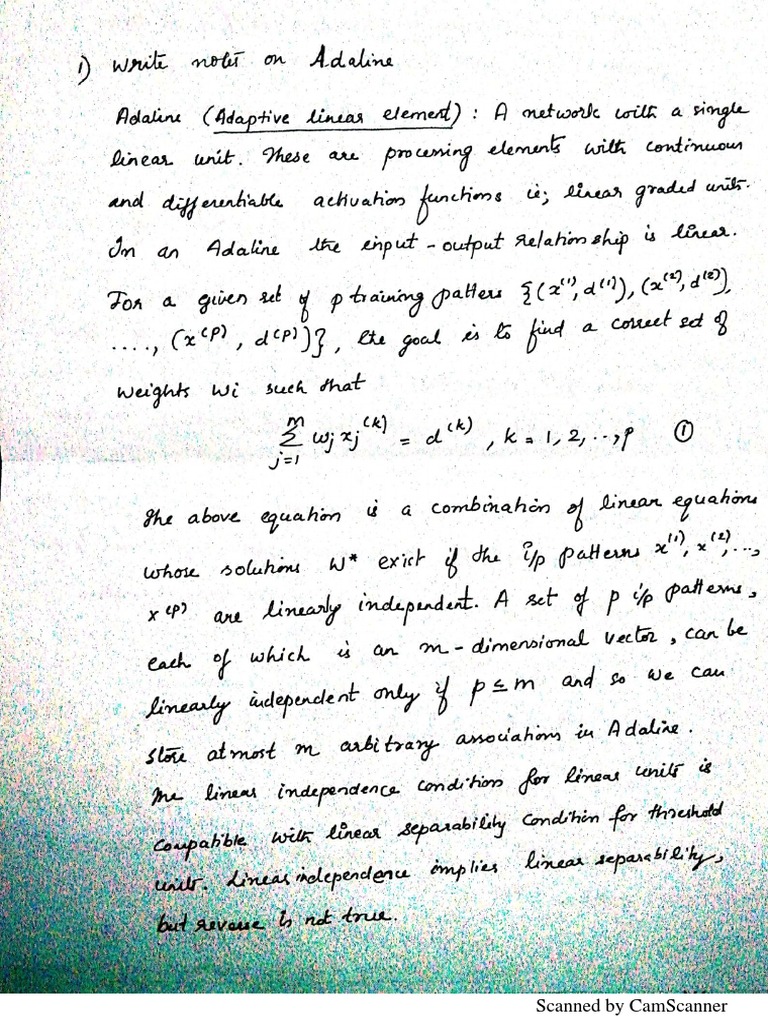 1) Write notes on Adaline
Adaline (Adaptive linear element) : A network with a single
linear unit. These are processing elements with continuous
and differentiable activation functions ie; linear graded units.
In an Adaline the input-output relationship is linear.
For a given set of p training patters {(x⁽¹⁾, d⁽¹⁾), (x⁽²⁾, d⁽²⁾),
...., (x⁽ᵖ⁾, d⁽ᵖ⁾)}, the goal is to find a correct set of
weights wi such that
m
Σ wj xj⁽ᵏ⁾ = d⁽ᵏ⁾, k = 1, 2, .., p ①
j=1
The above equation is a combination of linear equations
whose solutions W* exist if the i/p patterns x⁽¹⁾, x⁽²⁾, ...,
x⁽ᵖ⁾ are linearly independent. A set of p i/p patterns,
each of which is an m-dimensional vector, can be
linearly independent only if p ≤ m and so we can
store atmost m arbitrary associations in Adaline.
The linear independence condition for linear units is
compatible with linear separability condition for threshold
units. Linear independence implies linear separability,
but reverse is not true.
Scanned by CamScanner